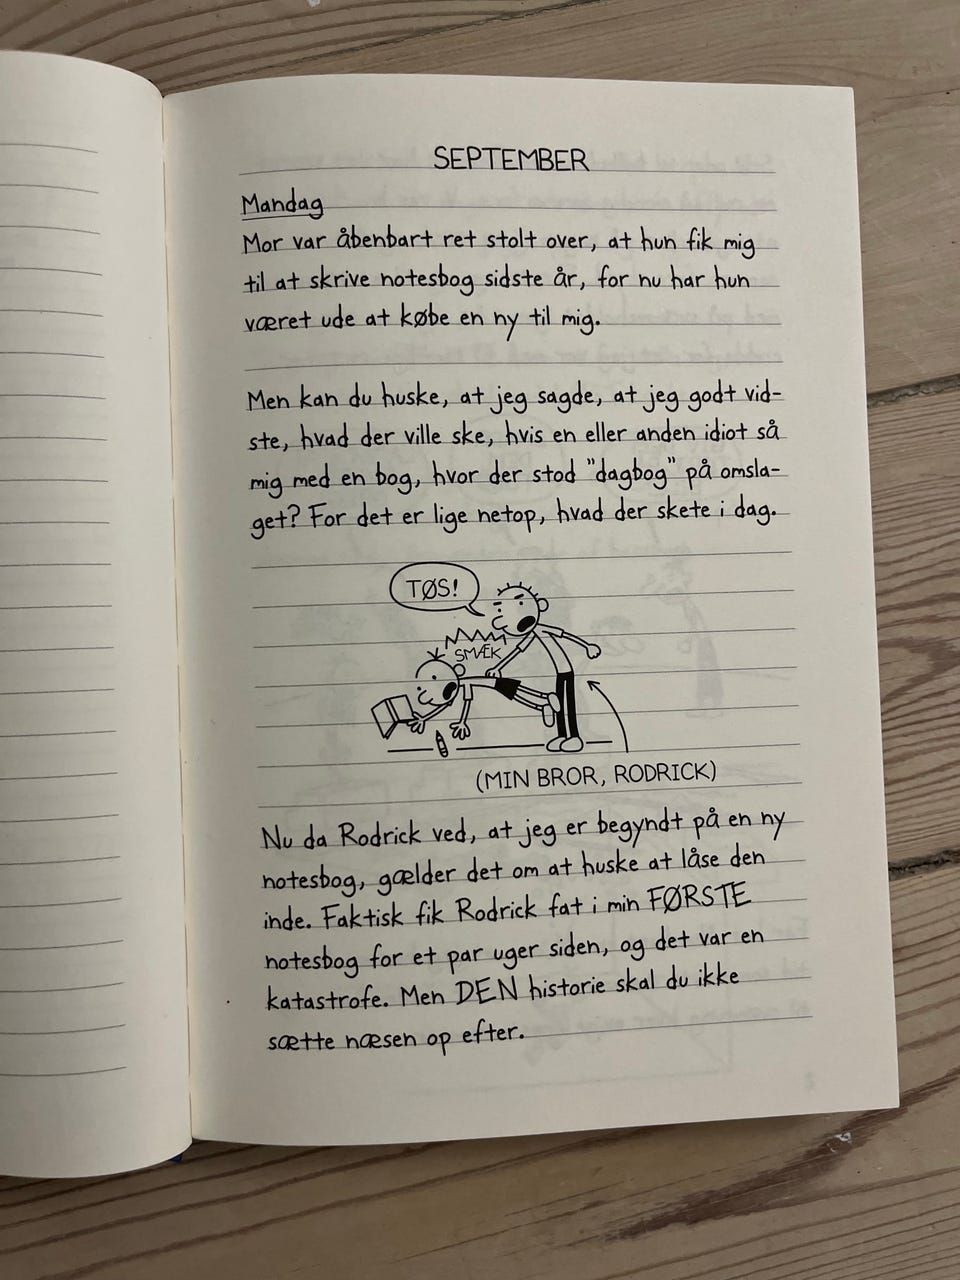 SEPTEMBER
Mandag
Mor var åbenbart ret stolt over, at hun fik mig
til at skrive notesbog sidste år, for nu har hun
været ude at købe en ny til mig.
Men kan du huske, at jeg sagde, at jeg godt vid-
ste, hvad der ville ske, hvis en eller anden idiot så
mig med en bog, hvor der stod "dagbog" på omsla-
get? For det er lige netop, hvad der skete i dag.
TØS!
SMÆK
(MIN BROR, RODRICK)
Nu da Rodrick ved, at jeg er begyndt på en ny
notesbog, gælder det om at huske at låse den
inde. Faktisk fik Rodrick fat i min FØRSTE
notesbog for et par uger siden, og det var en
katastrofe. Men DEN historie skal du ikke
sætte næsen op efter.